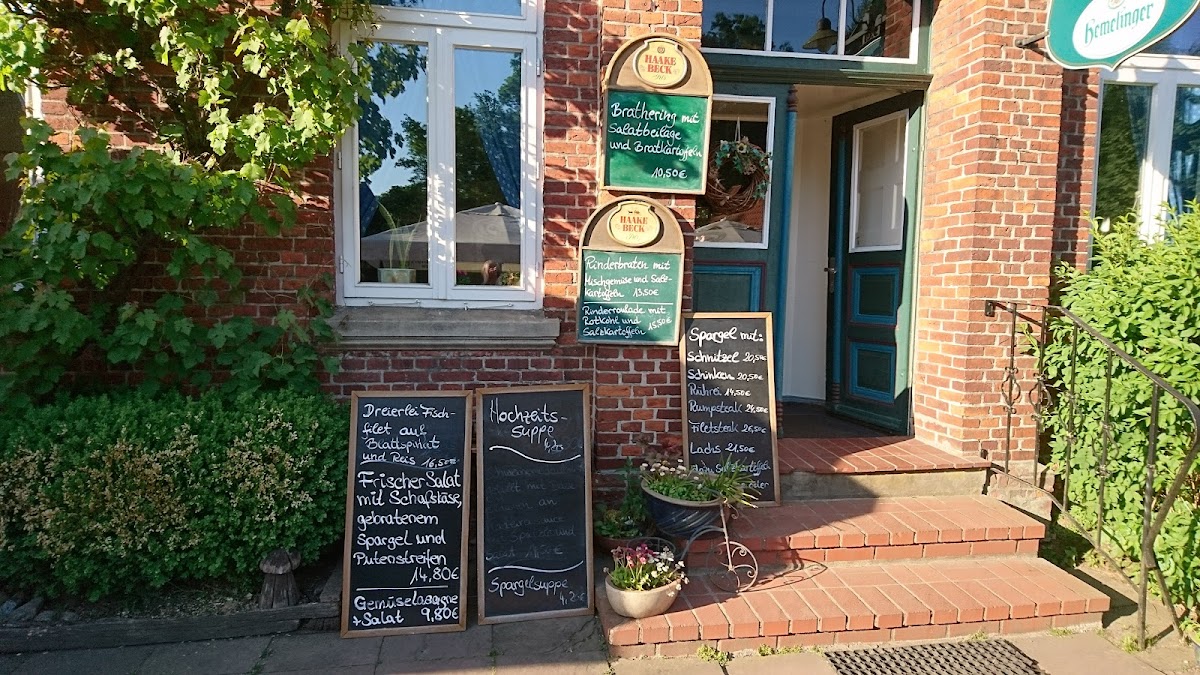 Hemelinger
HAAKE
BECK
Brathering mit
Salatbeilage
und Bratkartoffeln
10,50€
HAAKE
BECK
Rinderbraten mit
Mischgemüse und Salz-
kartoffeln 13,50€
Rinderroulade mit
Rotkohl und
Salzkartoffeln 15,50€
Spargel mit:
Schnitzel 20,50€
Schinken 20,50€
Rührei 14,50€
Rumpsteak 24,50€
Filetsteak 26,50€
Lachs 21,50€
Dreierlei Fisch-
filet auf
Blattspinat
und Reis 16,50€
Frischer Salat
mit Schafskäse,
gebratenem
Spargel und
Putenstreifen
14,80€
Gemüselasagne
+ Salat 9,80€
Hochzeits-
suppe
Spargelsuppe